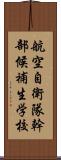 航空自衛隊幹部候補生学校